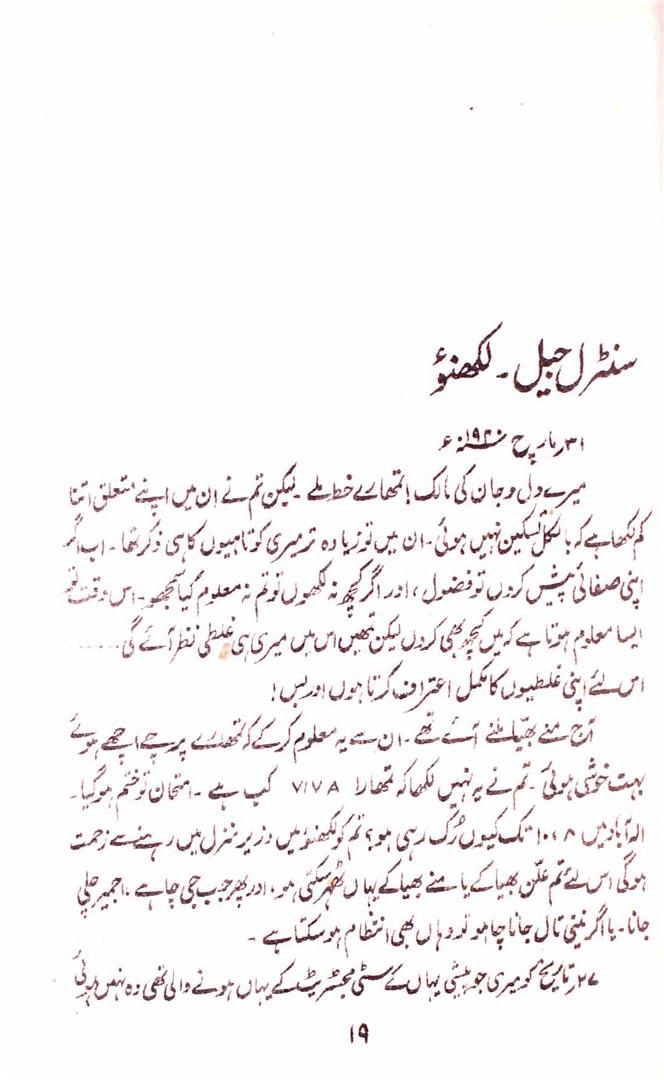 سنٹرل جیل ۔ لکھنؤ
۳۱ مارچ ۱۹۴۰ء
میرے دل و جان کی مالک! تمھارے خط ملے ۔ لیکن تم نے ان میں اپنے متعلق اتنا
کم لکھا ہے کہ بالکل تسکین نہیں ہوئی ۔ ان میں تو زیادہ تر میری کوتاہیوں کا ہی ذکر تھا ۔ اب اگر
اپنی صفائی پیش کروں تو فضول ، اور اگر کچھ نہ لکھوں تو تم نہ معلوم کیا سمجھو ۔ اس وقت تو
ایسا معلوم ہوتا ہے کہ میں کچھ بھی کروں لیکن تمھیں اس میں میری ہی غلطی نظر آئے گی ......
اس لئے اپنی غلطیوں کا مکمل اعتراف کرتا ہوں اور بس!
آج منے بھیا ملنے آئے تھے ۔ ان سے یہ معلوم کر کے کہ تمھارے پرچے اچھے ہوئے
بہت خوشی ہوئی ۔ تم نے یہ نہیں لکھا کہ تمھارا VIVA کب ہے ۔ امتحان تو ختم ہو گیا ۔
الہ آباد میں ۸ ، ۱۰ تک کیوں رک رہی ہو؟ تم کو لکھنؤ میں وزیر منزل میں رہنے سے زحمت
ہوگی اس لئے تم علّن بھیا کے یا منے بھیا کے یہاں ٹھہر سکتی ہو ، اور پھر جب جی چاہے ، اجمیر چلی
جانا ۔ یا اگر نینی تال جانا چاہو تو وہاں بھی انتظام ہو سکتا ہے ۔
۲۷ تاریخ کو میری جو پیشی یہاں کے سٹی مجسٹریٹ کے یہاں ہونے والی تھی وہ نہیں ہوئی
۱۹